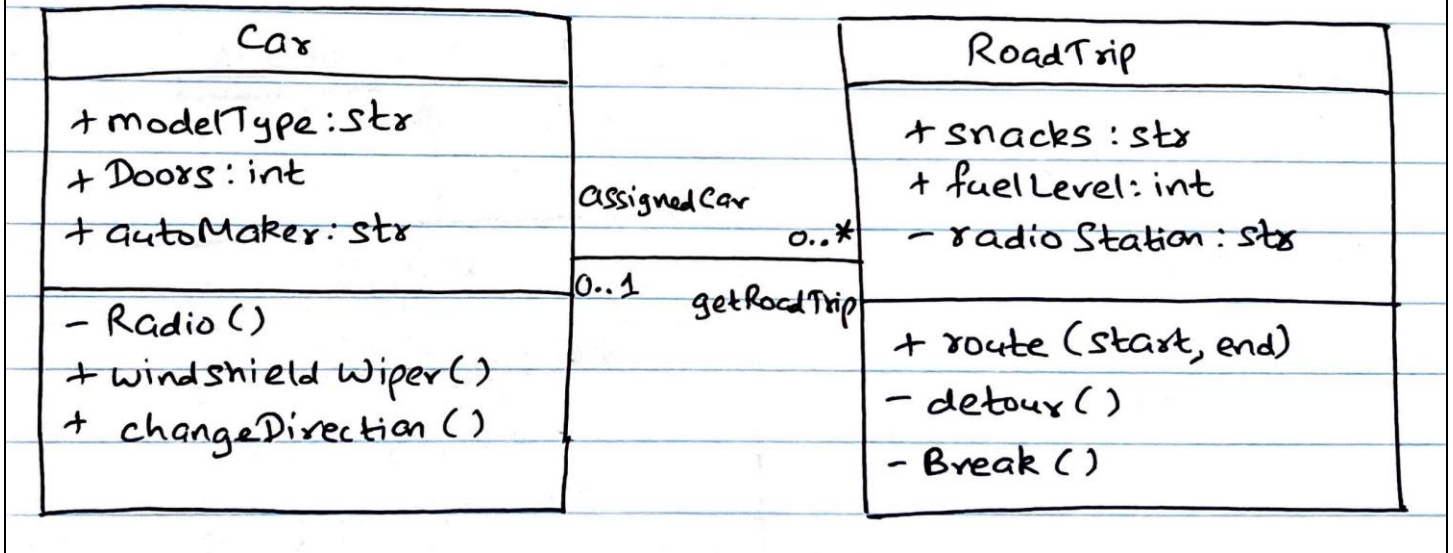 Car
+ modelType : str
+ Doors : int
+ autoMaker : str
- Radio ()
+ windshield Wiper ()
+ changeDirection ()
assignedCar
0..*
0..1
getRoadTrip
RoadTrip
+ snacks : str
+ fuelLevel : int
- radio Station : str
+ route (start, end)
- detour ()
- Break ()